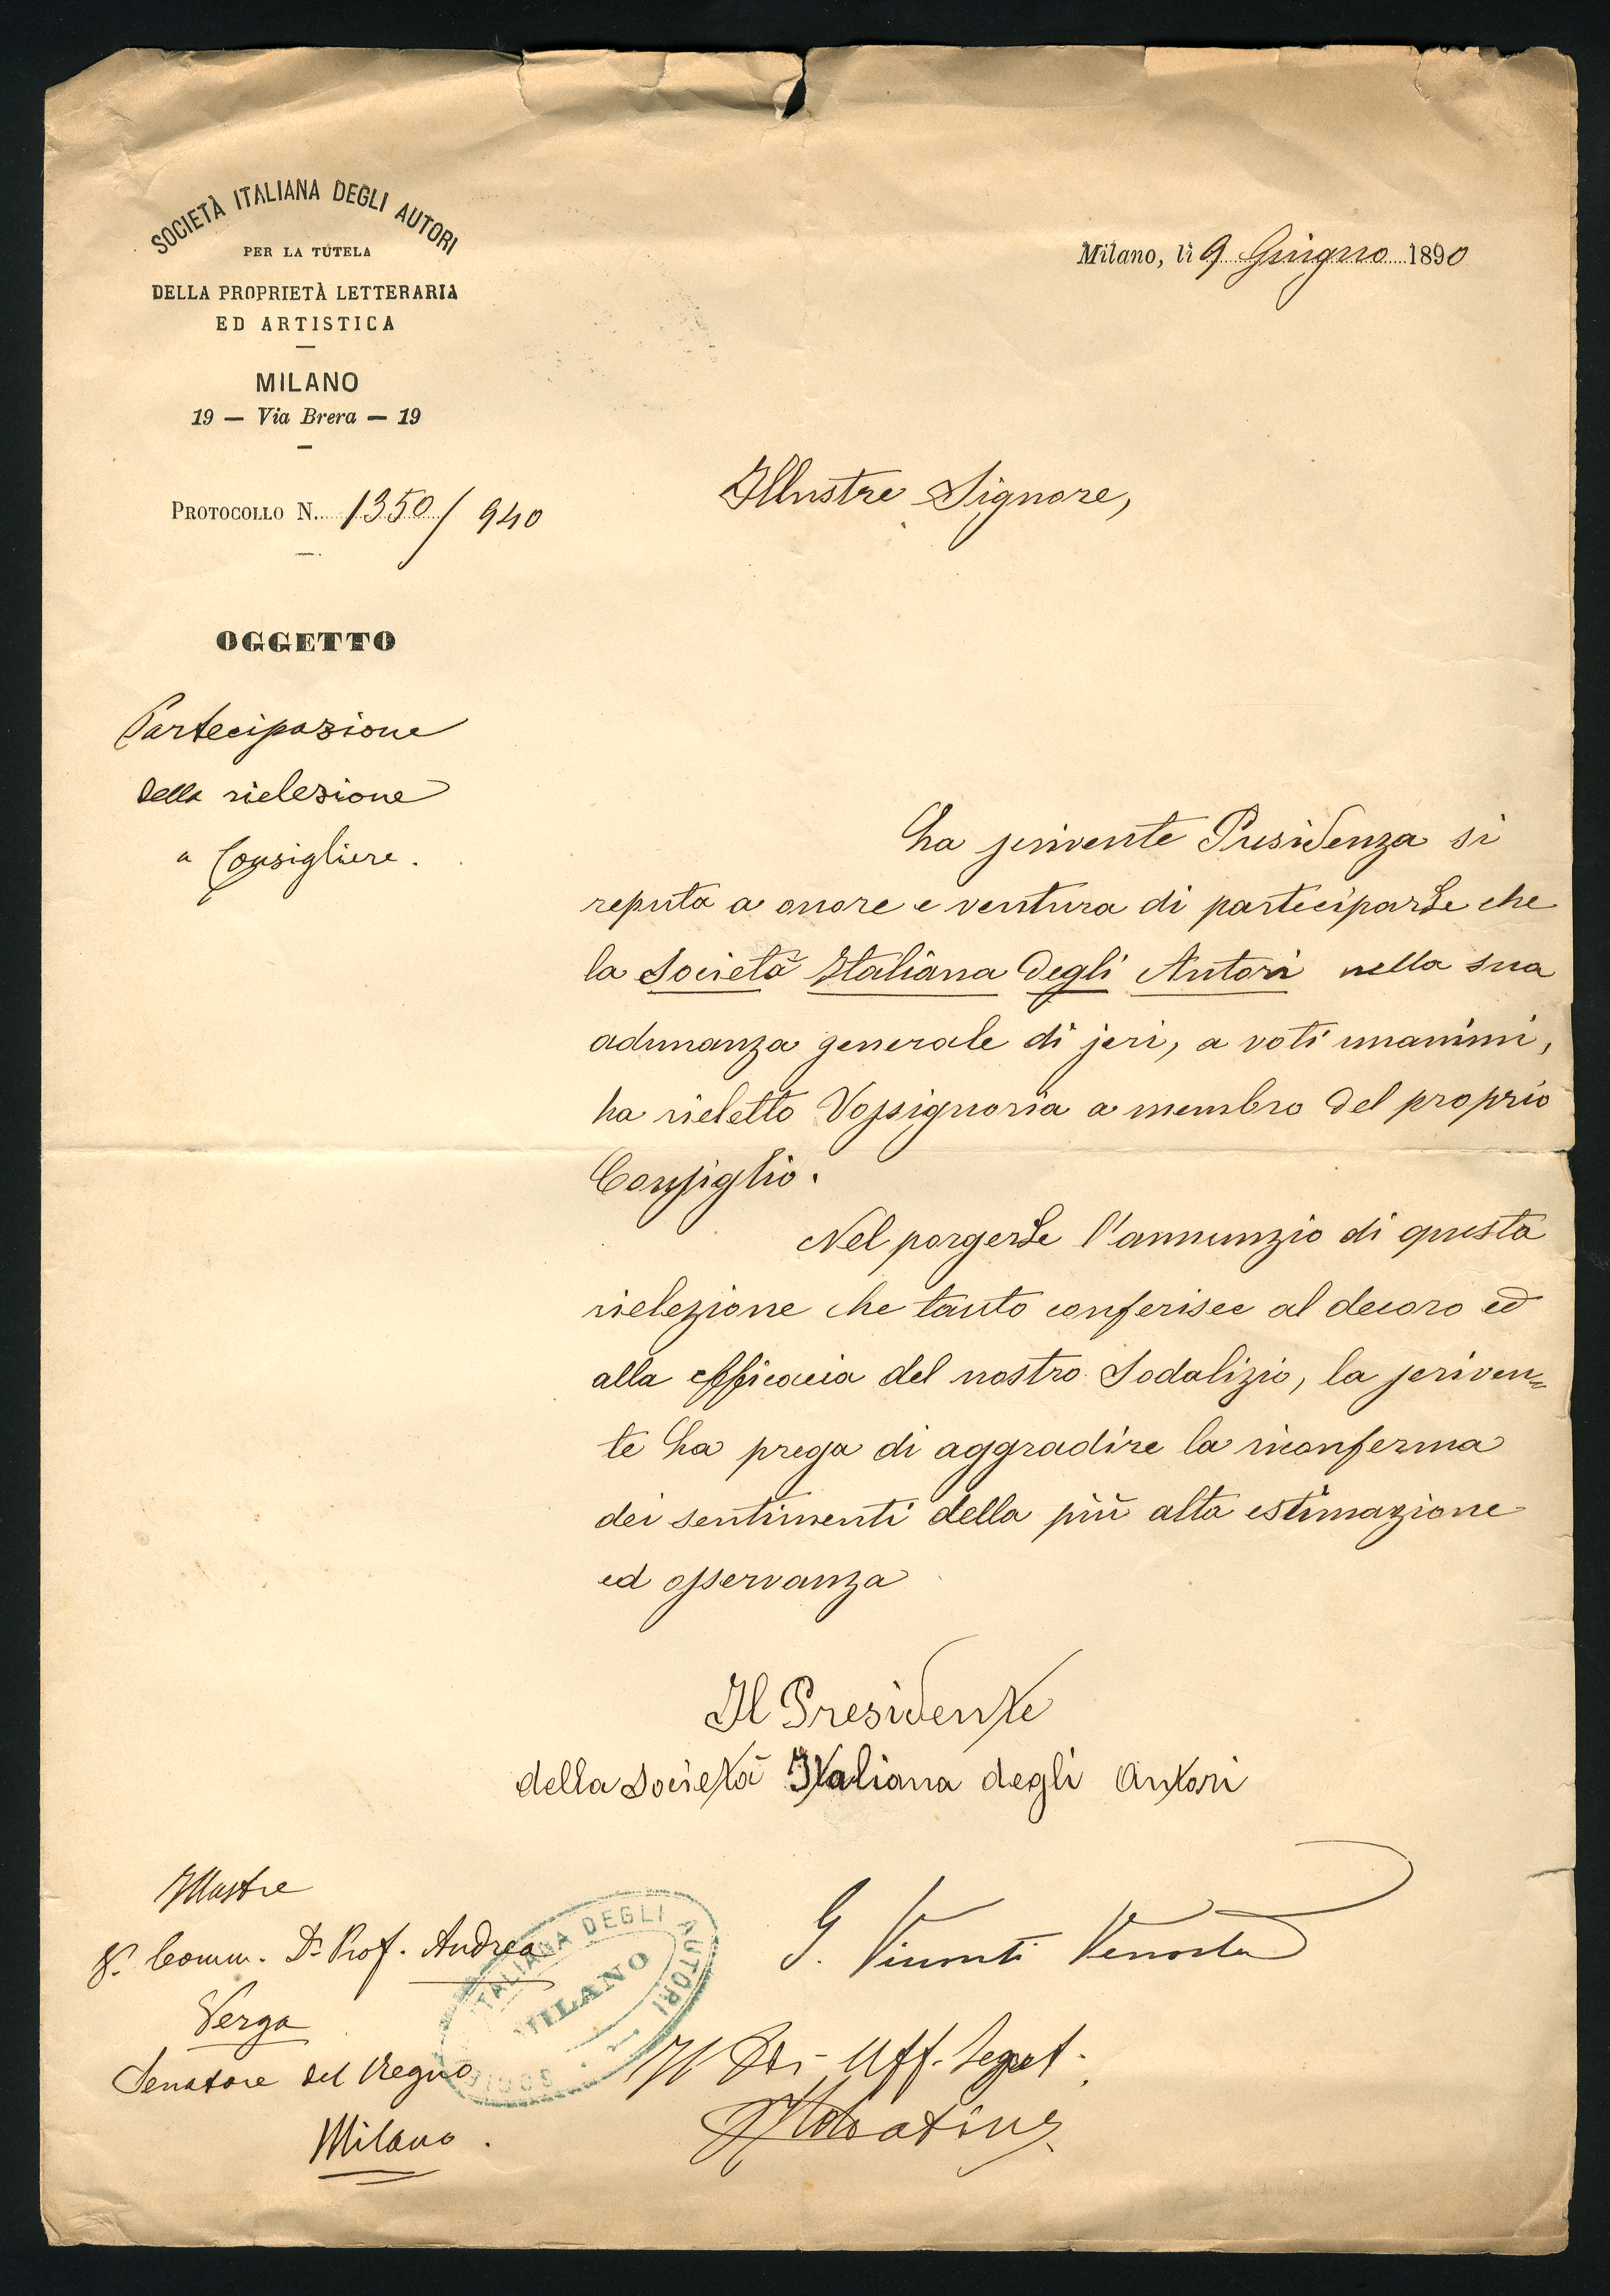 SOCIETÀ ITALIANA DEGLI AUTORI
PER LA TUTELA
DELLA PROPRIETÀ LETTERARIA
ED ARTISTICA
MILANO
19 — Via Brera — 19
PROTOCOLLO N. 1350/940
Milano, li 9 Giugno 1890
Illustre Signore,
OGGETTO
Partecipazione
della rielezione
a Consigliere.
La scrivente Presidenza si
reputa a onore e ventura di parteciparLe che
la Società Italiana degli Autori nella sua
adunanza generale di jeri, a voti unanimi,
ha rieletto Vossignoria a membro del proprio
Consiglio.
Nel porgerLe l'annunzio di questa
rielezione che tanto conferisce al decoro ed
alla efficacia del nostro Sodalizio, la scriven=
te La prega di aggradire la riconferma
dei sentimenti della più alta estimazione
ed osservanza
Il Presidente
della Società Italiana degli Autori
G. Visconti Venosta
Illustre
Sr. Comm. Dr. Prof. Andrea
Verga
Senatore del Regno
Milano.
SOCIETÀ ITALIANA DEGLI AUTORI
MILANO